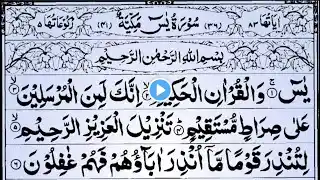 اٰیَاتُهَا ۸۳ (۳۶) سُوْرَةُ یٰسٓ مَكِّیَّةٌ (۴۱) رُكُوْعَاتُهَا ۵
بِسْمِ اللّٰهِ الرَّحْمٰنِ الرَّحِیْمِ
یٰسٓ ۚ‏﴿۱﴾ وَالْقُرْاٰنِ الْحَكِیْمِ ۙ‏﴿۲﴾ اِنَّكَ لَمِنَ الْمُرْسَلِیْنَ ۙ‏﴿۳﴾
عَلٰی صِرَاطٍ مُّسْتَقِیْمٍ ؕ‏﴿۴﴾ تَنْزِیْلَ الْعَزِیْزِ الرَّحِیْمِ ۙ‏﴿۵﴾
لِتُنْذِرَ قَوْمًا مَّاۤ اُنْذِرَ اٰبَآؤُهُمْ فَهُمْ غٰفِلُوْنَ ‏﴿۶﴾